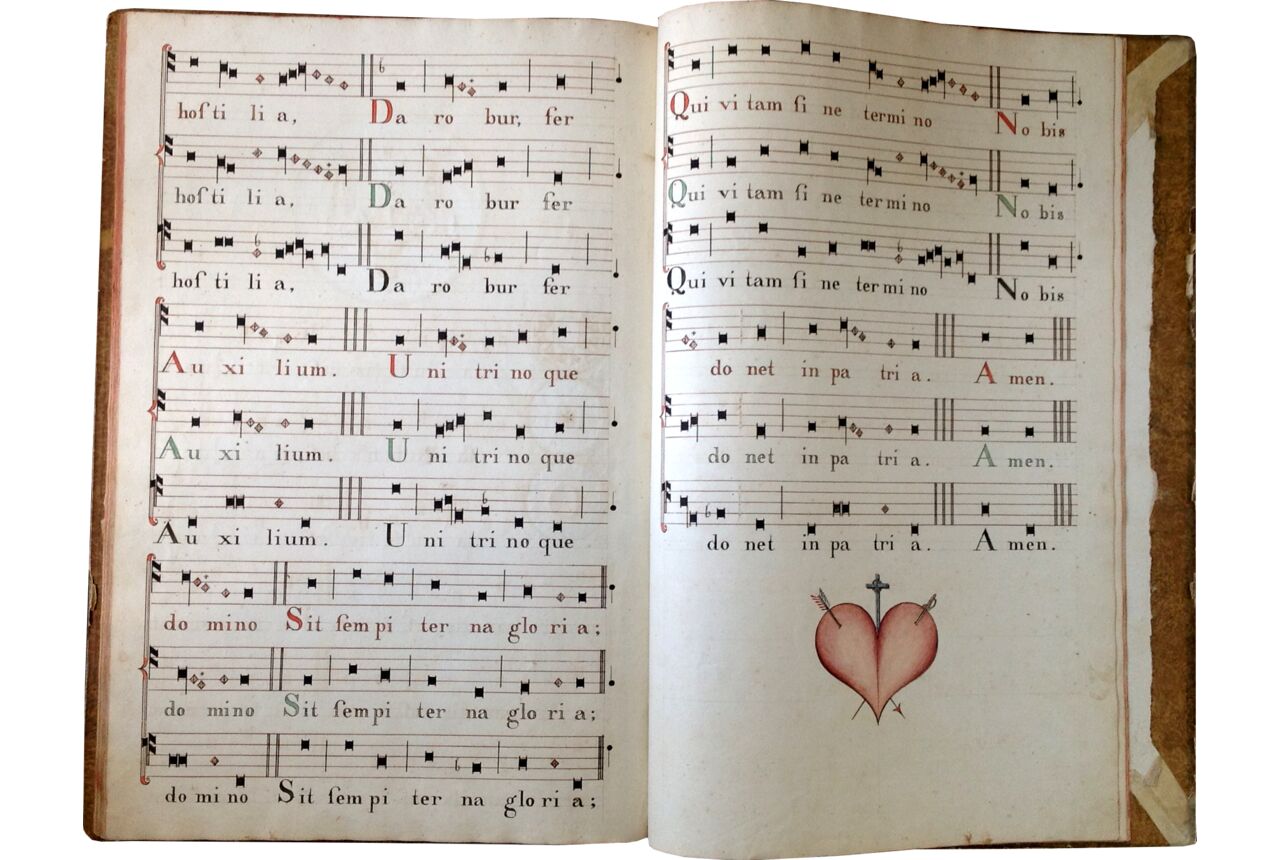 hoſ ti li a, Da ro bur, fer
hoſ ti li a, Da ro bur fer
hoſ ti li a, Da ro bur fer
Au xi lium. U ni tri no que
Au xi lium. U ni tri no que
Au xi lium. U ni tri no que
do mino Sit ſem pi ter na glo ri a;
do mino Sit ſem pi ter na glo ri a;
do mi no Sit ſem pi ter na glo ri a;
Qui vi tam ſi ne termi no No bis
Qui vi tam ſi ne ter mi no No bis
Qui vi tam ſi ne ter mi no No bis
do net in pa tri a. A men.
do net in pa tri a. A men.
do net in pa tri a. A men.